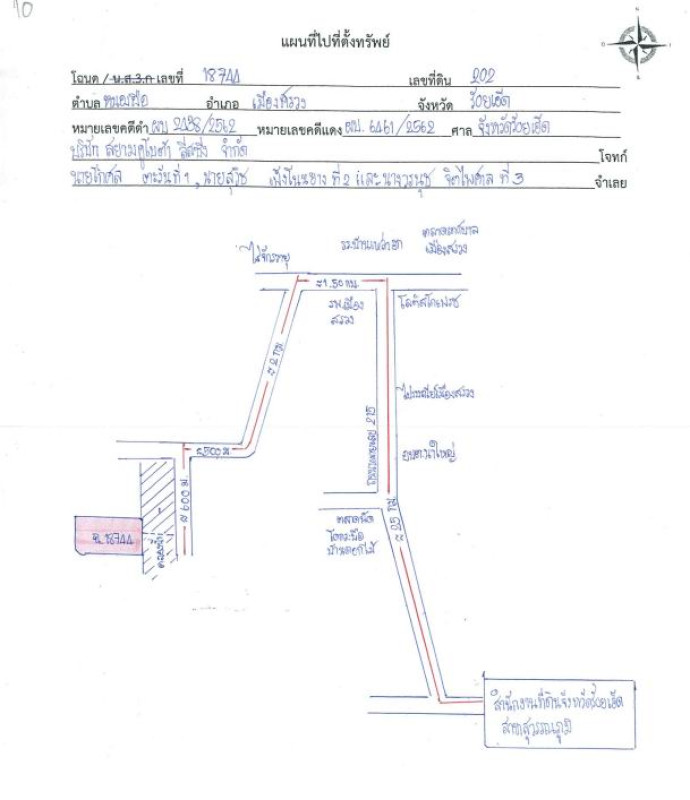 10
แผนที่ไปที่ตั้งทรัพย์
โฉนด / น.ส.3.ก เลขที่ 18744 เลขที่ดิน 202
ตำบล หนองผือ อำเภอ เมืองสรวง จังหวัด ร้อยเอ็ด
หมายเลขคดีดำ ผบ 2438/2562 หมายเลขคดีแดง ผบ. 6461/2562 ศาล จังหวัดร้อยเอ็ด
บริษัท สยามคูโบต้า ลีสซิ่ง จำกัด โจทก์
นายโกศล ที่ 1, นายสุวิช ที่ 2 และ นางวรนุช จิตไพศาล ที่ 3 จำเลย
ตลาดเทศบาล
เมืองสรวง
≈1.50 กม.
รพ.เมือง
สรวง
โลตัสโกเฟรช
≈ 2 กม.
ไปรษณีย์เมืองสรวง
ทางหลวงหมายเลข 215
≈500 ม.
≈ 600 ม.
ฉ. 18744
ตลาดนัด
โคกระบือ
บ้านดอกไม้
≈ 25 กม.
สำนักงานที่ดินจังหวัดร้อยเอ็ด
สาขาสุวรรณภูมิ